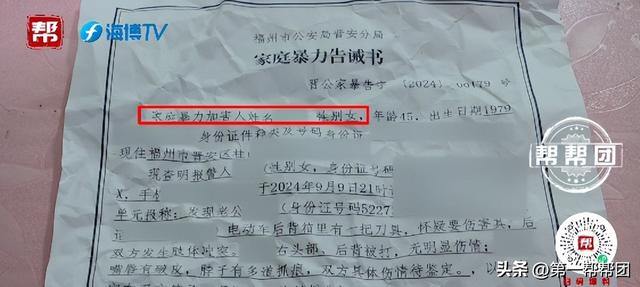 帮
海博TV
福州市公安局晋安分局
家庭暴力告诫书
晋公家暴告字〔2024〕00179号
家庭暴力加害人姓名 性别女，年龄45，出生日期1979
身份证件种类及号码身份证
现住福州市晋安区
现查明报警人 （性别女，身份证号码
X，手机 于2024年9月9日21时
单元报称：发现老公 （身份证号码5227
电动车后背箱里有一把刀具，怀疑要伤害其，后
双方发生肢体冲突。 右头部、后背被打，无明显伤情；
嘴唇有破皮，脖子有多道抓痕，双方具体伤情待鉴定。，以
帮帮团
帮
扫码爆料
头条 @第一帮帮团